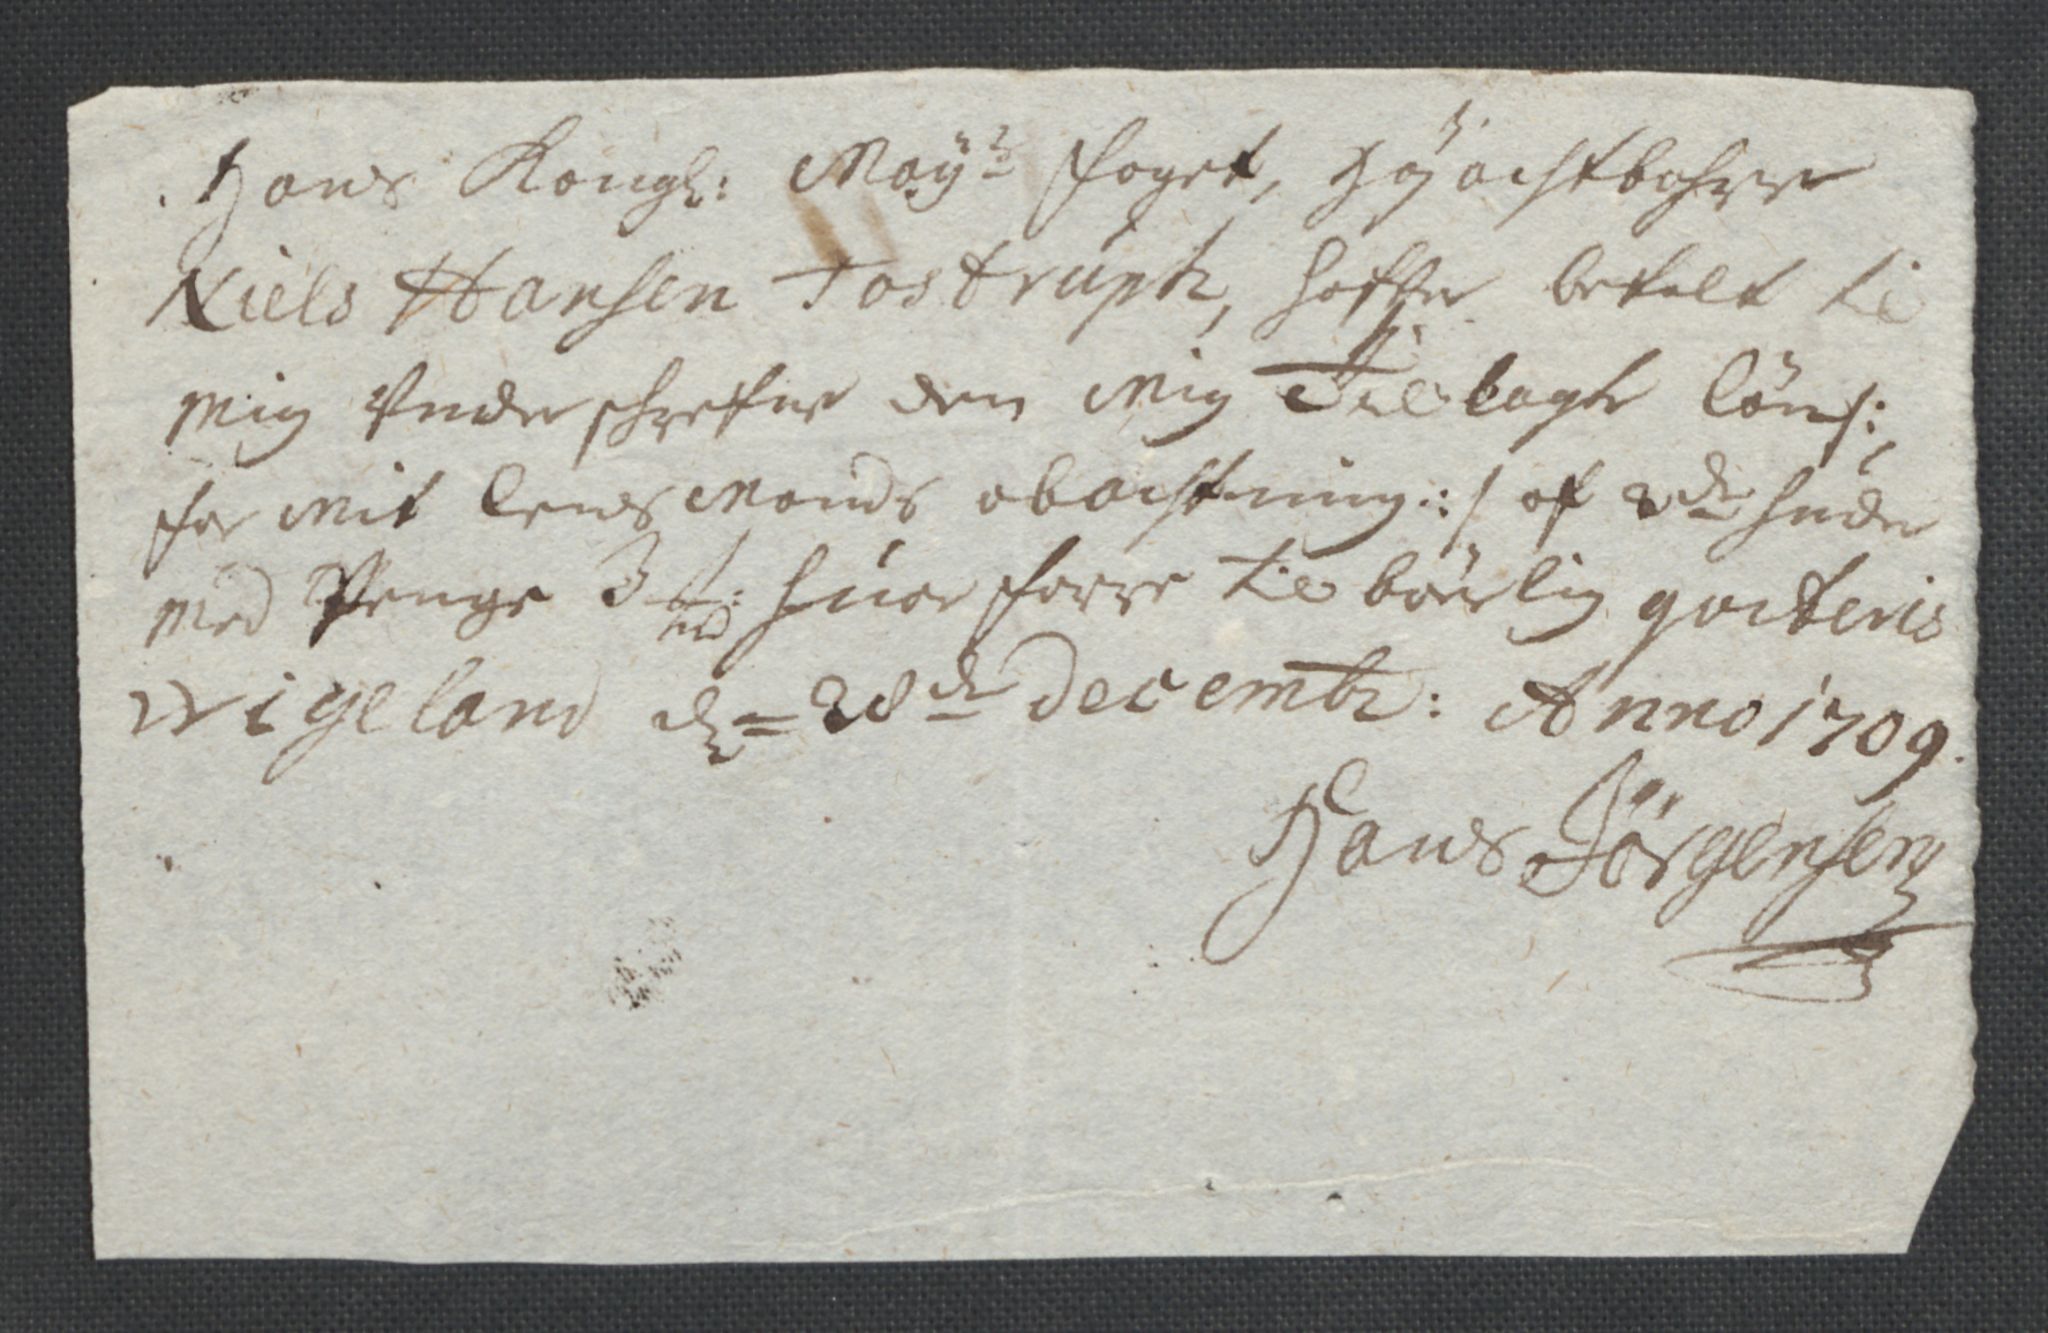 Hans Kongl: Mayts foget, Høyachtbahre
Niels Hansen Tostruph, hafver betalt til
mig Underschrefne den mig Tillagte lön/:
for mit lensmands obachtning:/ af 2de huder
med Penge 3 hvor forre tilbørlig qviteris
Wigeland d: 28de Decembr: Anno 1709.
Hans Jörgensen